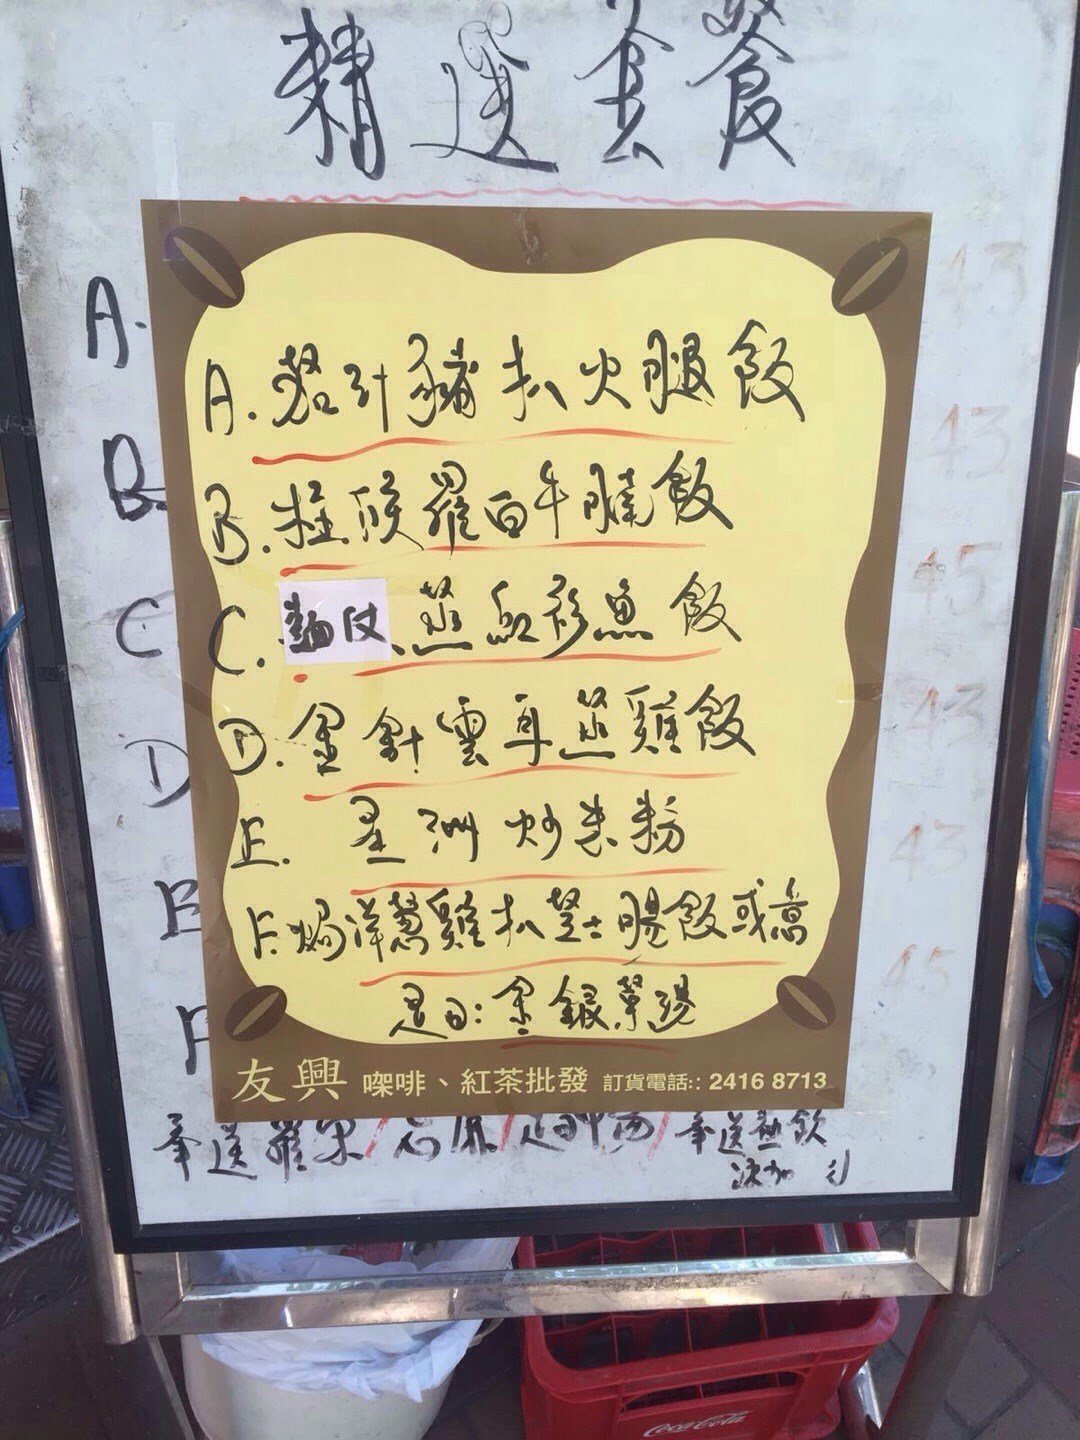 精選套餐
A. 43
A. 茄汁豬扒火腿飯
B. 43
B. 柱侯羅白牛𦟌飯
C 45
C. 麵豉蒸紅衫魚飯
D 43
D. 金針雲耳蒸雞飯
E 43
E. 星洲炒米粉
F 45
F. 焗洋葱雞扒芝士腸飯或意
是日: 金銀菜湯
友興 㗎啡、紅茶批發 訂貨電話:: 2416 8713
奉送羅宋/忌廉/是日中湯/奉送熱飲
凍加
Coca-Cola